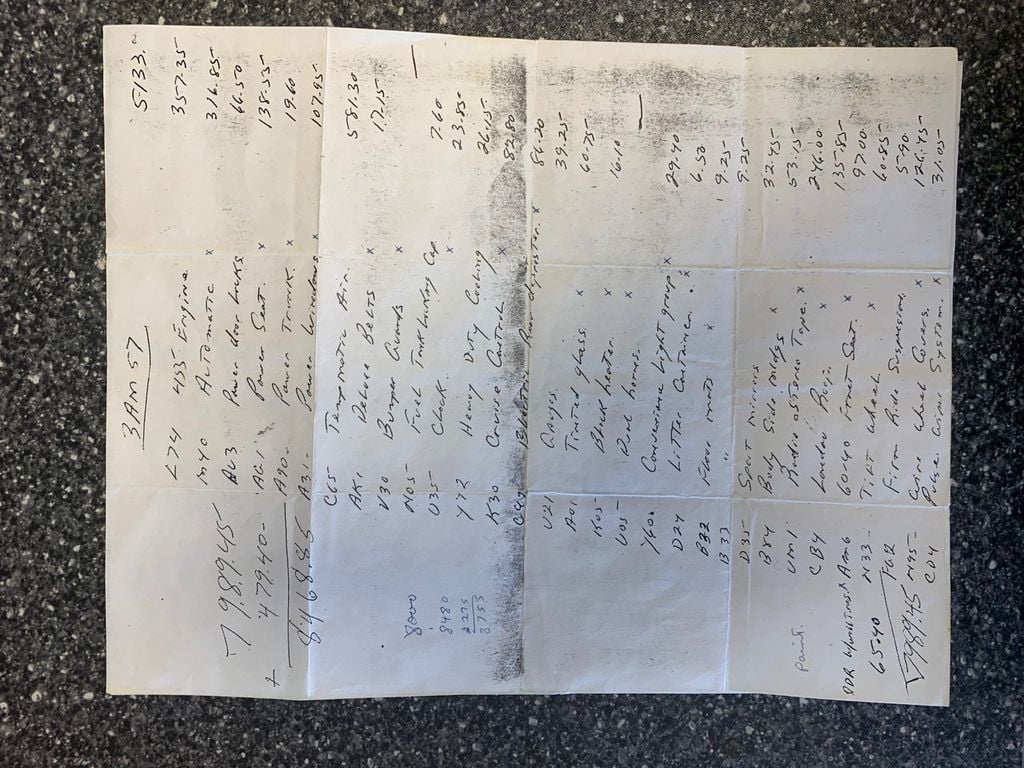 3AM57 5133.
L74 435 Engine 357.35
M40 Automatic x 316.85
AU3 Power door locks 66.50
7,989.45 AG1 Power Seat x 138.35
+ 479.40 A90 Power Trunk. x 19.60
8468.85 A31 Power windows x 107.95
C65 Tempmatic Air. 581.30
AK1 Deluxe Belts x 17.15
V30 Bumper Guards x —
8000 N05 Fuel Tank locking Cap 7.60
8480 U35 Clock. x 23.85
275 V72 Heavy Duty Cooling 26.15
8755 K30 Cruise Control 82.80
Rear defroster. x 86.20
U21 Gauges. 39.25
A01 Tinted glass. x 60.75
K05 Block heater. x 16.10
U05 Dual horns. x —
Y60 Convenience Light group x 29.40
D24 Litter Container. x 6.50
B32 Floor mats x 9.25
B33 " 9.25
D35 Sport mirrors 32.45
B84 Body Side mldgs x 53.15
UM1 Radio a.stereo Tape. x 246.00
Paint. CB4 Landau x 135.85
AM6 60/40 Front Seat. x 97.00
65.40 N33 Tilt Wheel. x 60.85
FG2 Firm Ride Suspension. 5.90
7989.45 N95 Wire Wheel Covers. x 126.45
CD4 Pulse Wiper System. x 31.05